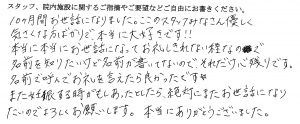 スタッフ、院内施設に関するご指摘やご要望などご自由にお書きください。
10ヶ月間お世話になりました。ここのスタッフみなさん優しく
気さくな方ばかりで、本当に大好きです!!
本当に本当にお世話になってお礼しきれない程なので
名前を知りたいけど名前が書いてないので、それだけ心残りです。
名前で呼んでお礼を言えたら良かったです
また妊娠する時がもしあったとしたら、絶対にまたお世話になり
たいのでよろしくお願いします。本当にありがとうございました。